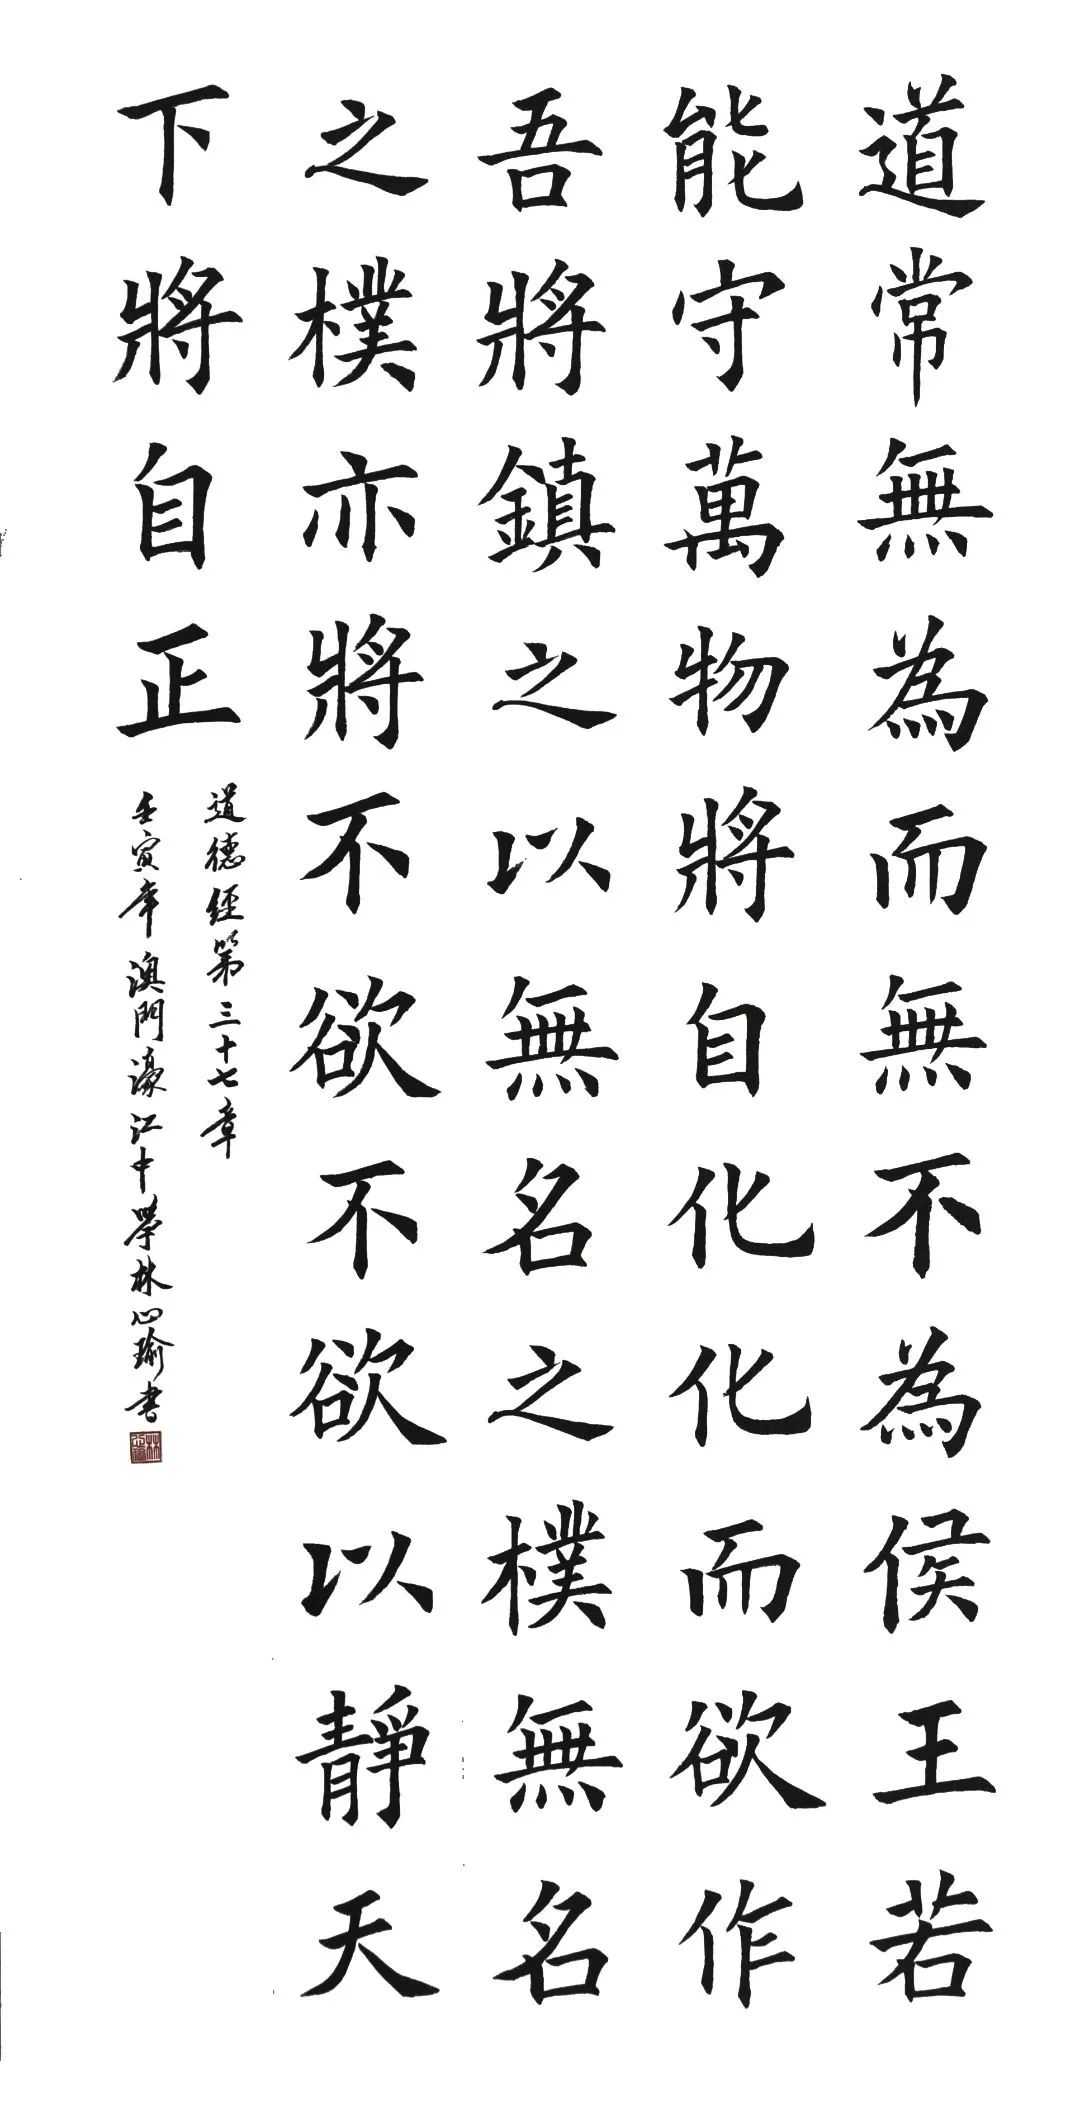 道常無為而無不為侯王若
能守萬物將自化化而欲作
吾將鎮之以無名之樸無名
之樸亦將不欲不欲以靜天
下將自正
道德經第三十七章
壬寅年澳門濠江中學林心瑜書